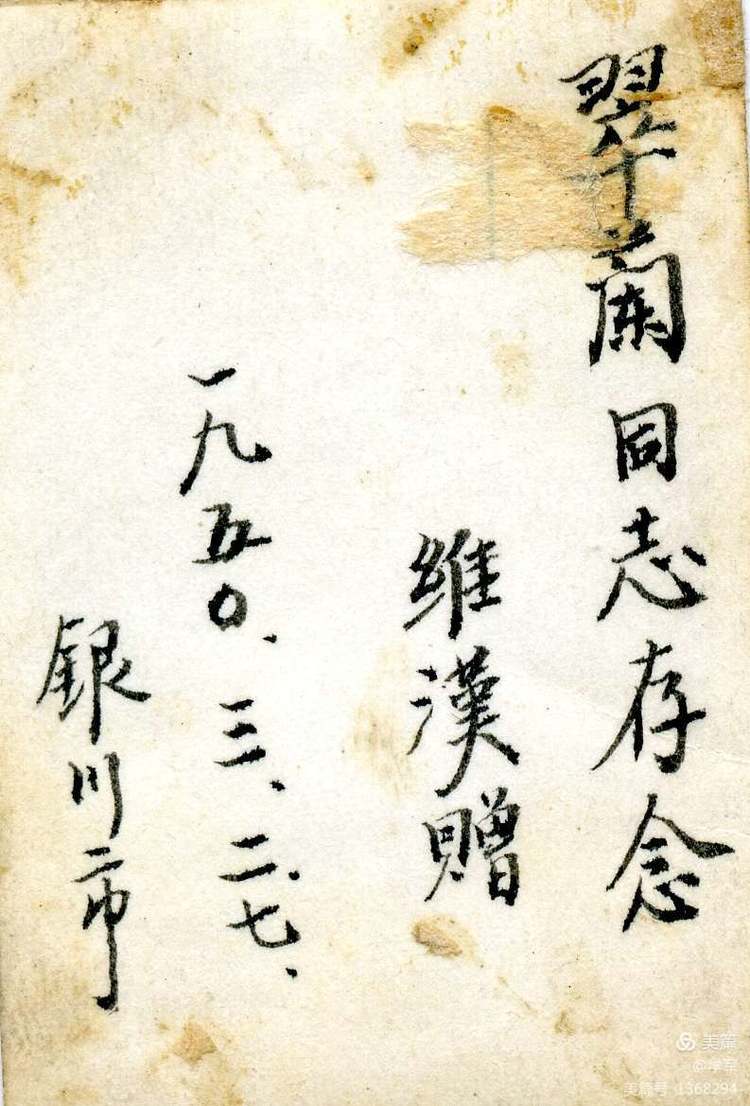 翠蘭同志存念
維漢贈
一九五〇、三、二七、
銀川市
美篇
美篇号 1368294